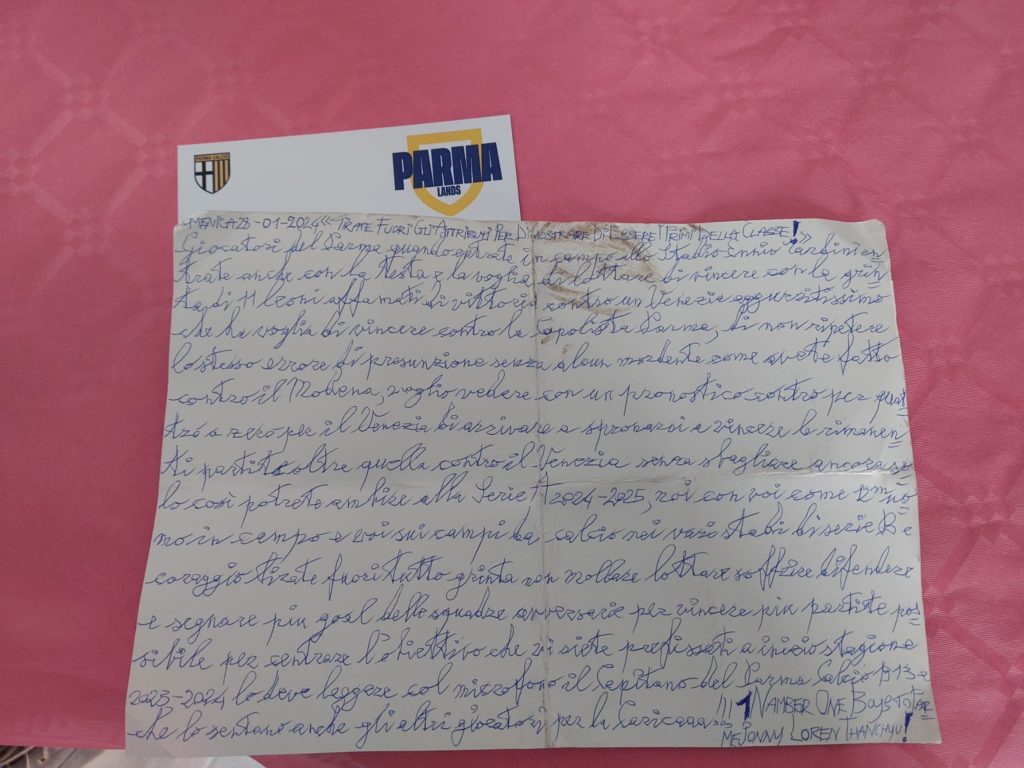 PARMA CALCIO
PARMA
LANDS
MENICA 28-01-2024 << TIRATE FUORI GLI ATTRIBUTI PER DIMOSTRARE DI ESSERE I PRIMI DELLA CLASSE! >>
Giocatori del Parma quando entrate in campo allo Stadio Ennio Tardini en=
trate anche con la testa e la voglia di lottare di vincere con la grin=
ta di 11 leoni affamati di vittoria contro un Venezia agguerritissimo
che ha voglia di vincere contro la Capolista Parma, di non ripetere
lo stesso errore di presunzione senza alcun mordente come avete fatto
contro il Modena, voglio vedere con un pronostico contro per quat=
tro a zero per il Venezia di arrivare a spronarvi a vincere le rimanen=
ti partite oltre quella contro il Venezia senza sbagliare ancora so=
lo così potrete ambire alla Serie A 2024-2025, noi con voi come 12mo no=
mo in campo e voi sui campi da calcio nei vari stadi di serie B e
coraggio tirate fuori tutto grinta non mollare lottare soffrire difendere
e segnare piu goal delle squadre avversarie per vincere piu partite pos=
sibile per centrare l'obiettivo che vi siete prefissati a inizio stagione
2023-2024 lo deve leggere col microfono il Capitano del Parma Calcio 1913 e
che lo sentano anche gli altri giocatori per la Caricaaa!!! 1 NAMBER ONE BOYS TOTAR=
ME JONNY LOREN THANCHYU!